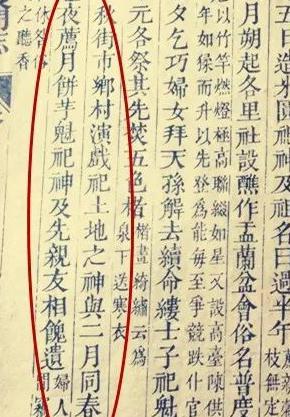 五日造米圓祀神及祖名曰過半年
枝無定
月朔起各里社設醮作盂蘭盆會俗名普度
以竹竿燃燈極高聯綴如星又設高臺陳供
年如猱而升以先登為能每至爭競跌仆官
夕乞巧婦女拜天孫解去續命縷士子祀魁
元各祭其先焚五色楮畫綺繡云為
泉下送寒衣
秋街市鄉村演戲祀土地之神與二月同春
夜薦月餅芋魁祀神及先親友相餽遺婦人
之聽香